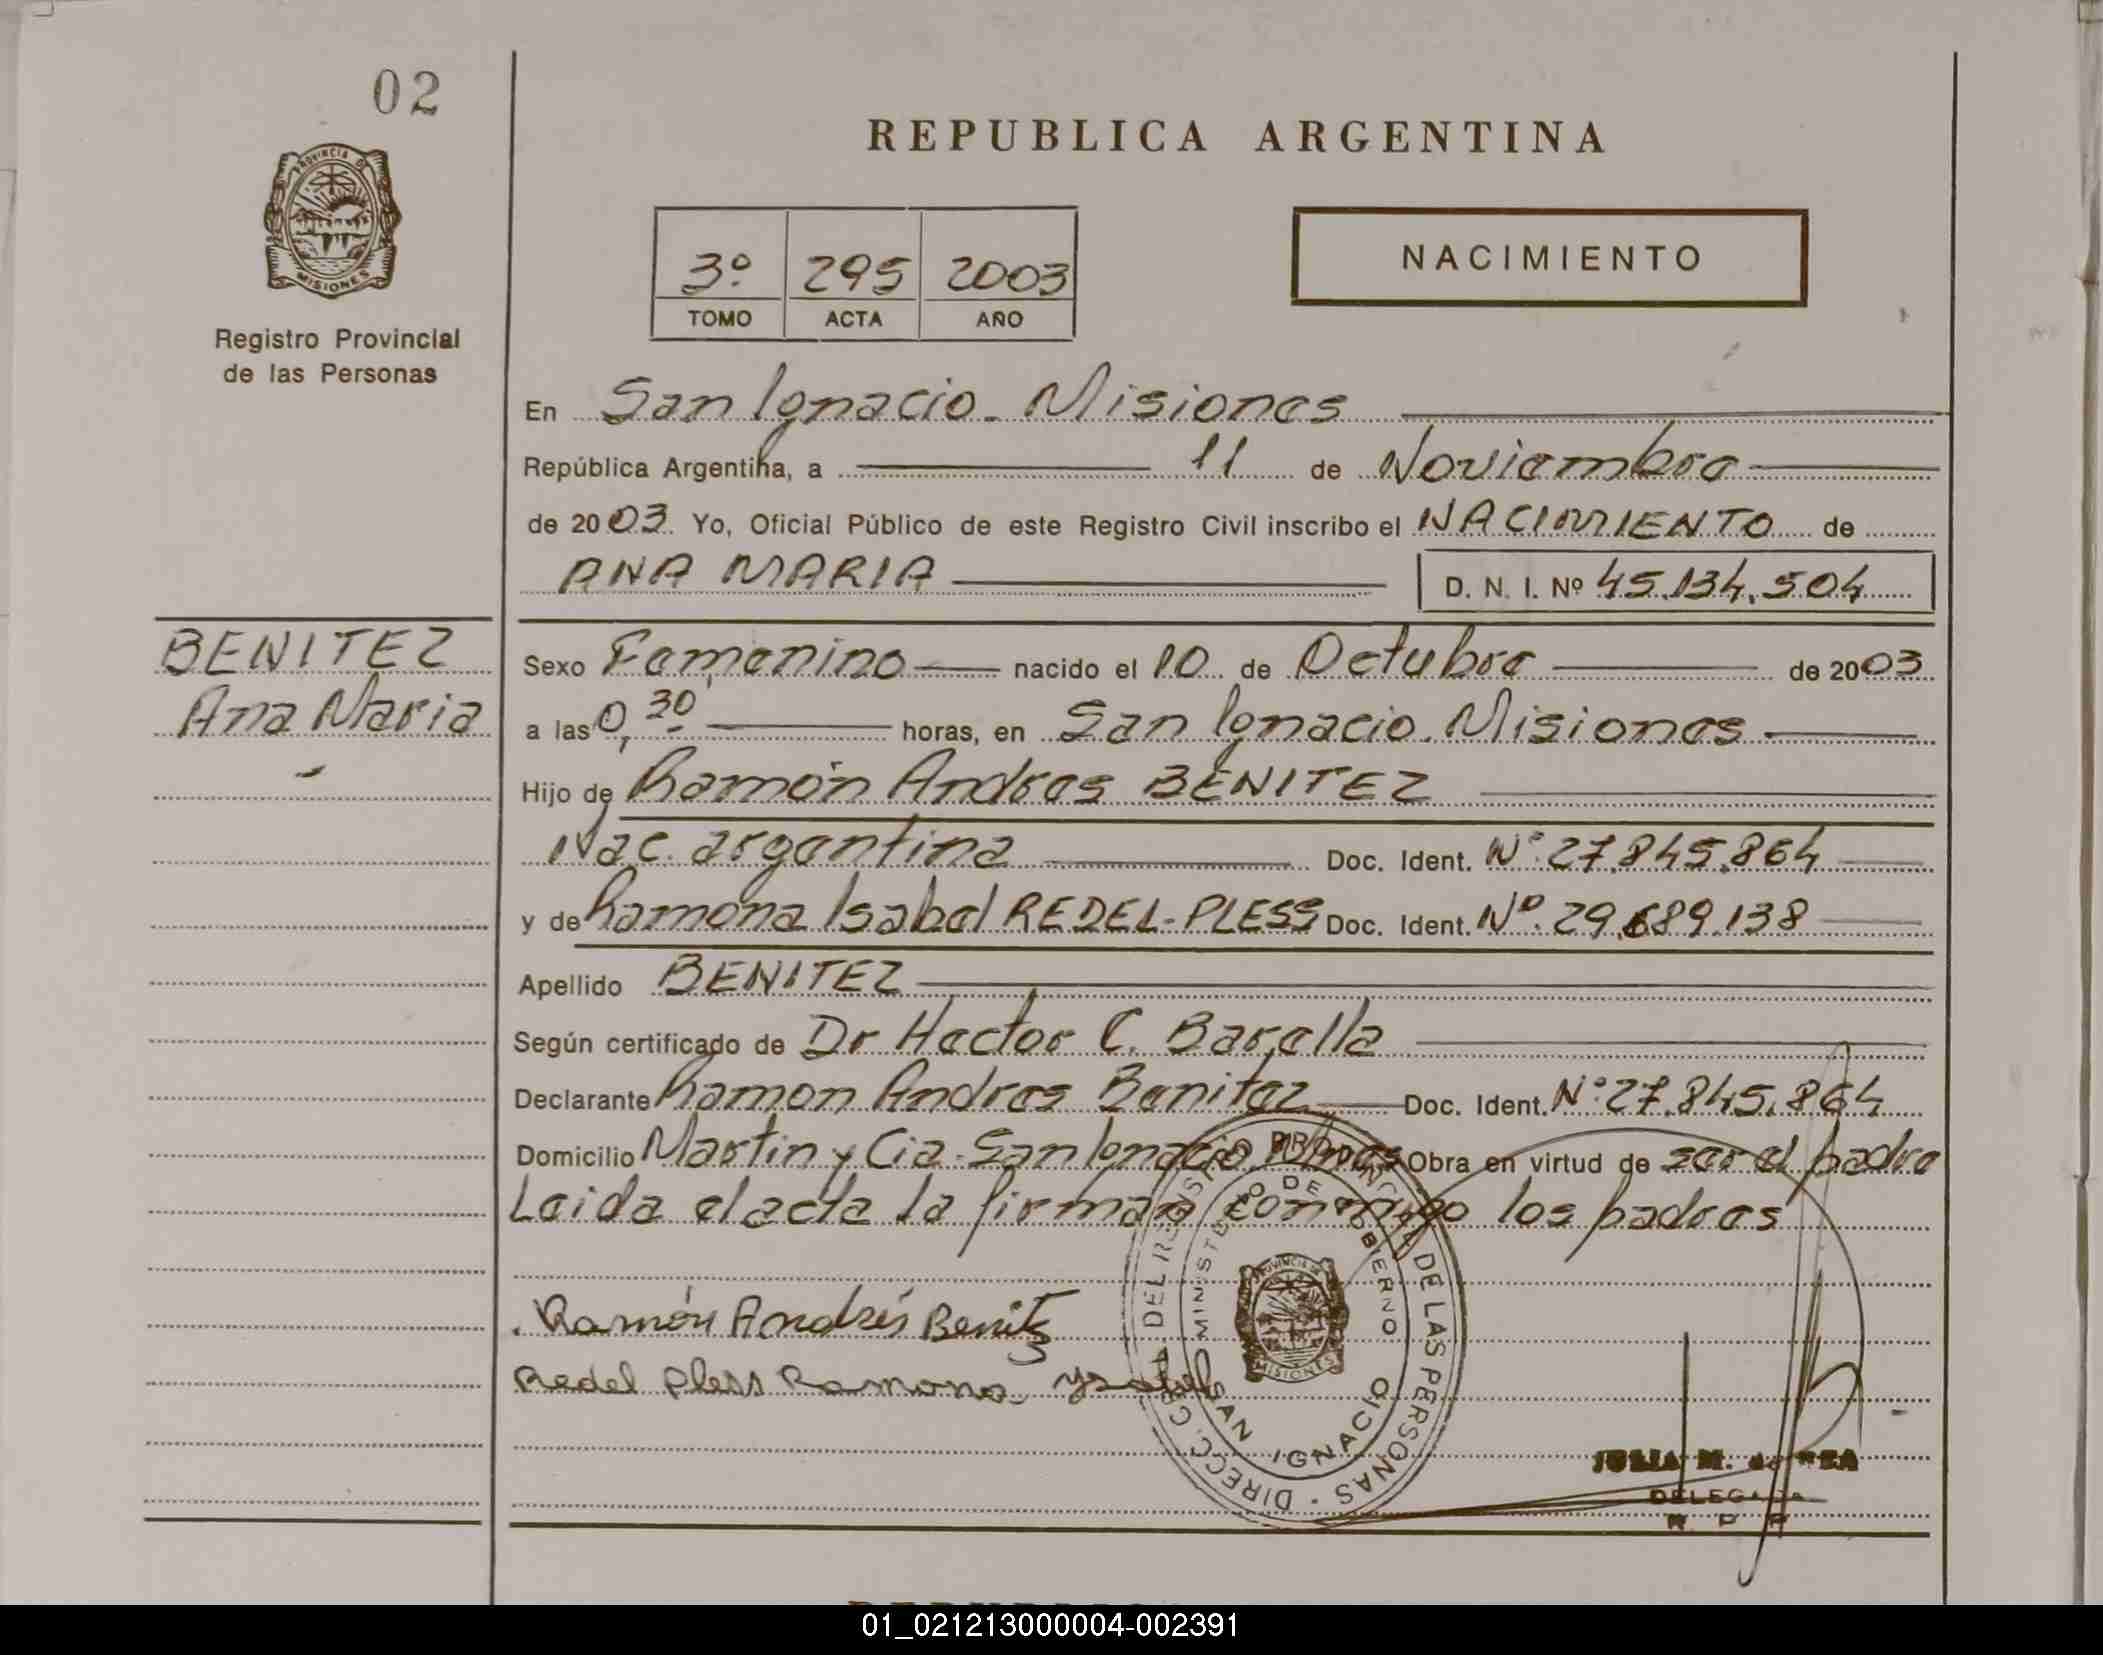 02
REPUBLICA ARGENTINA
PROVINCIA DE
MISIONES
Registro Provincial
de las Personas
3º 295 2003
TOMO ACTA AÑO
NACIMIENTO
En San Ignacio. Misiones
República Argentina, a 11 de Noviembre
de 2003. Yo, Oficial Público de este Registro Civil inscribo el NACIMIENTO de
ANA MARIA D. N. I. Nº 45.134.504
BENITEZ
Ana Maria
Sexo Femenino nacido el 10 de Octubre de 2003
a las 0,30 horas, en San Ignacio. Misiones
Hijo de Ramón Andres BENITEZ
Nac. argentina Doc. Ident. Nº 27.845.864
y de Ramona Isabel REDEL-PLESS Doc. Ident. Nº 29.689.138
Apellido BENITEZ
Según certificado de Dr Hector C. Barella
Declarante Ramon Andres Benitez Doc. Ident. Nº 27.845.864
Domicilio Martin y Cia. San Ignacio Obra en virtud de ser el padre
Leida el acta la firman conmigo los padres
Ramón Andrés Benitz
Redel Pless Ramona Ysabel
DIRECC. DEL PROVINCIAL DE LAS PERSONAS
MINISTERIO DE GOBIERNO
PROVINCIA DE
MISIONES
SAN IGNACIO
JULIA M. de REA
DELEGADA
R P P
01_021213000004-002391